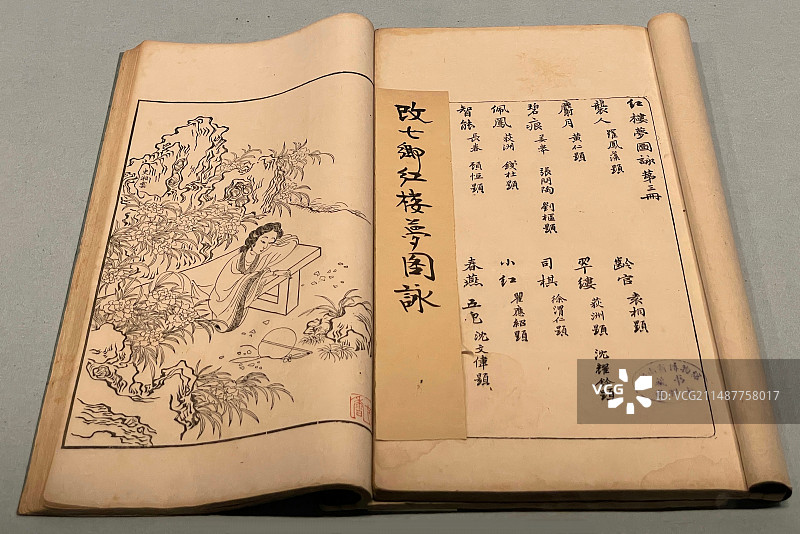 红樓夢圖詠第三冊
襲人 羅鳳藻題 齡官 袁桐題
麝月 黃仁題 翠縷 荻洲題 沈
碧痕 姜皋 張問陶 劉樞題 司棋 徐渭仁題
佩鳳 荻洲 錢杜題 小红 瞿應紹題
智能 長春 顧恒題 春燕 五兒 沈文偉題
改七卿红楼夢图詠
史湘雲
VCG
ID:VCG211487758017